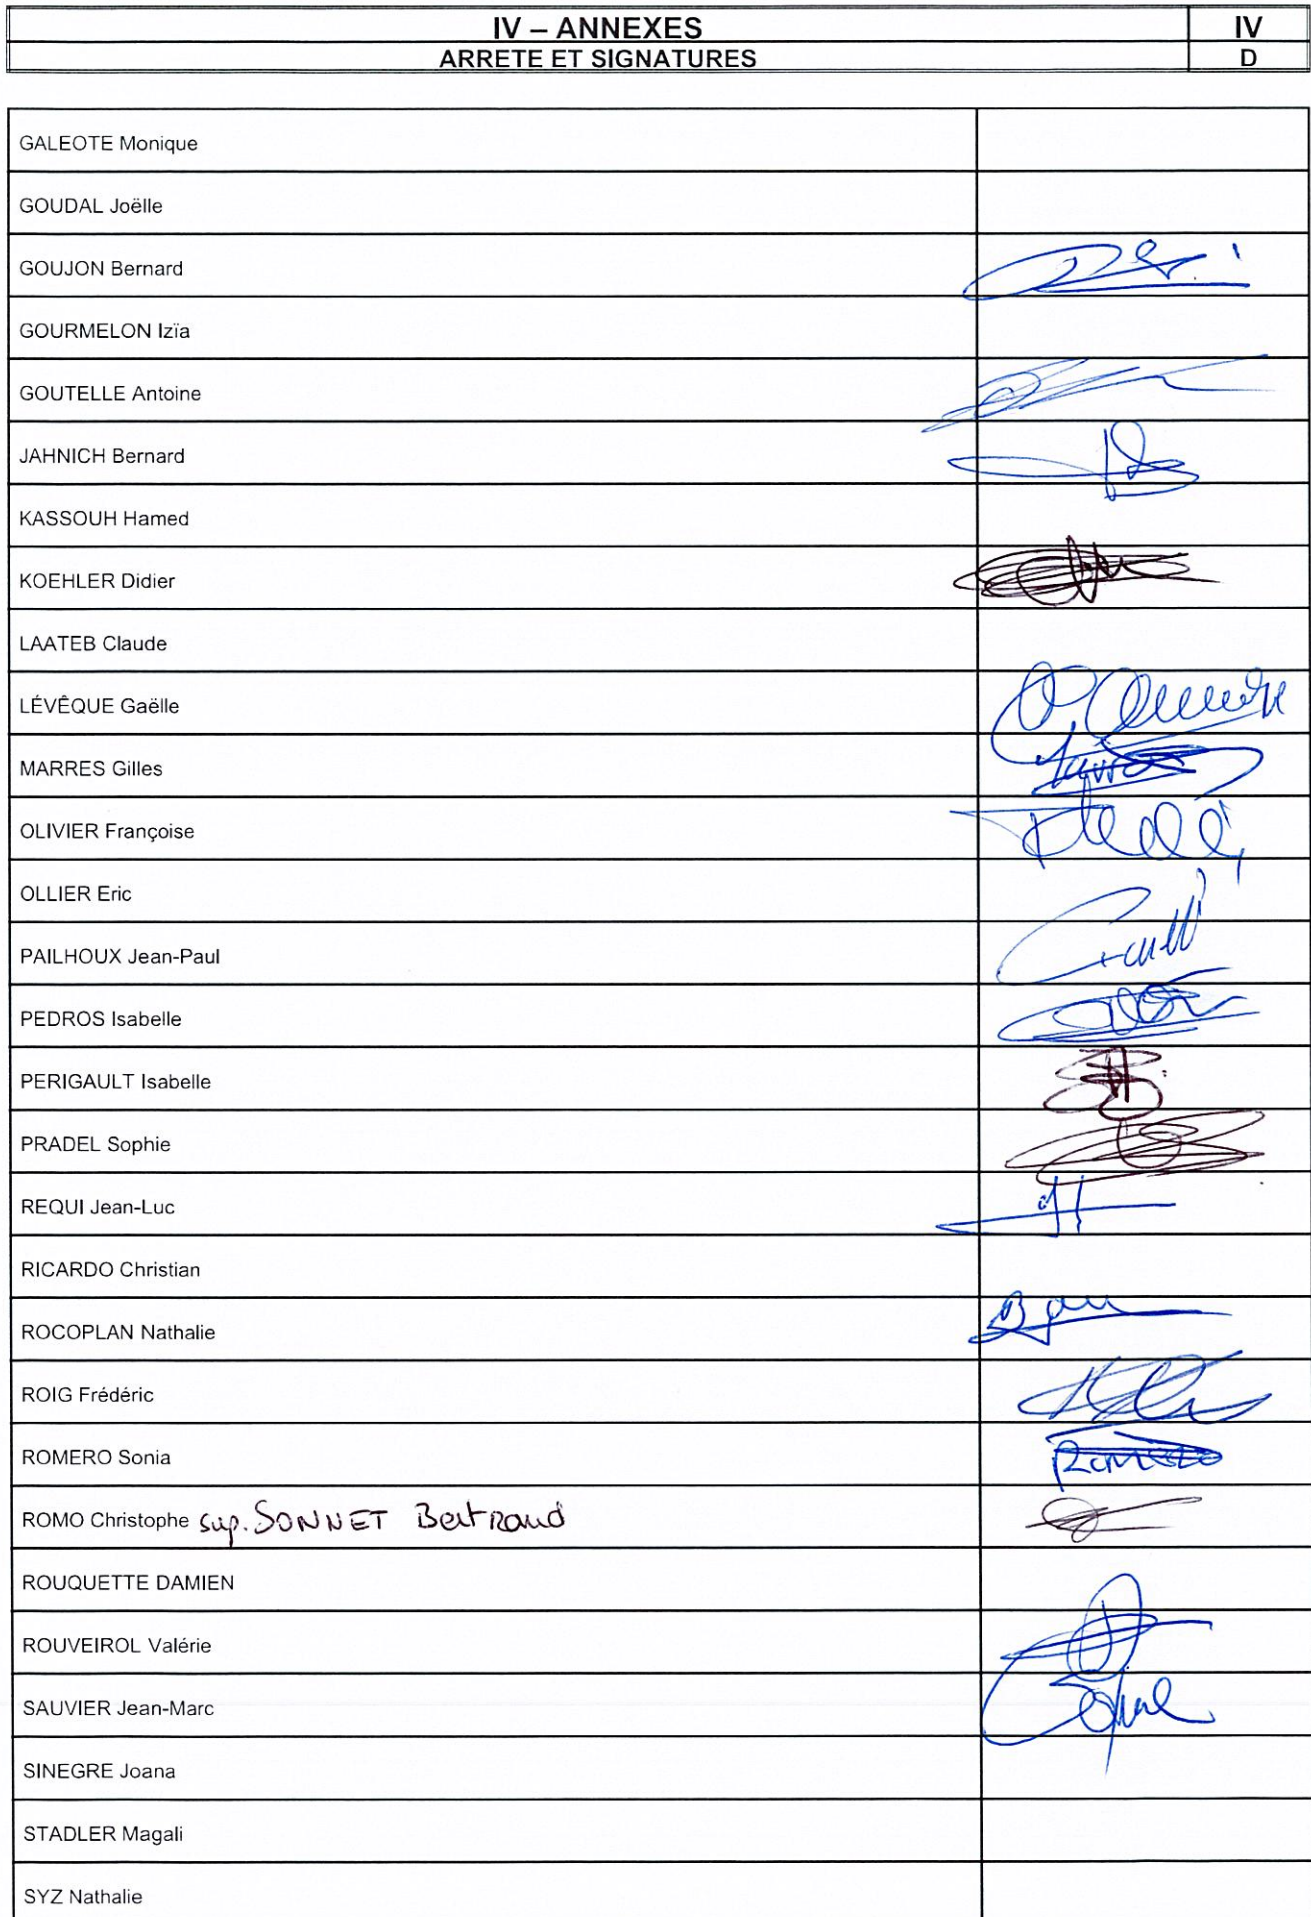 IV – ANNEXES IV
ARRETE ET SIGNATURES D
GALEOTE Monique
GOUDAL Joëlle
GOUJON Bernard
GOURMELON Izïa
GOUTELLE Antoine
JAHNICH Bernard
KASSOUH Hamed
KOEHLER Didier
LAATEB Claude
LÉVÊQUE Gaëlle
MARRES Gilles
OLIVIER Françoise
OLLIER Eric
PAILHOUX Jean-Paul
PEDROS Isabelle
PERIGAULT Isabelle
PRADEL Sophie
REQUI Jean-Luc
RICARDO Christian
ROCOPLAN Nathalie
ROIG Frédéric
ROMERO Sonia
ROMO Christophe sup. SONNET Bertrand
ROUQUETTE DAMIEN
ROUVEIROL Valérie
SAUVIER Jean-Marc
SINEGRE Joana
STADLER Magali
SYZ Nathalie